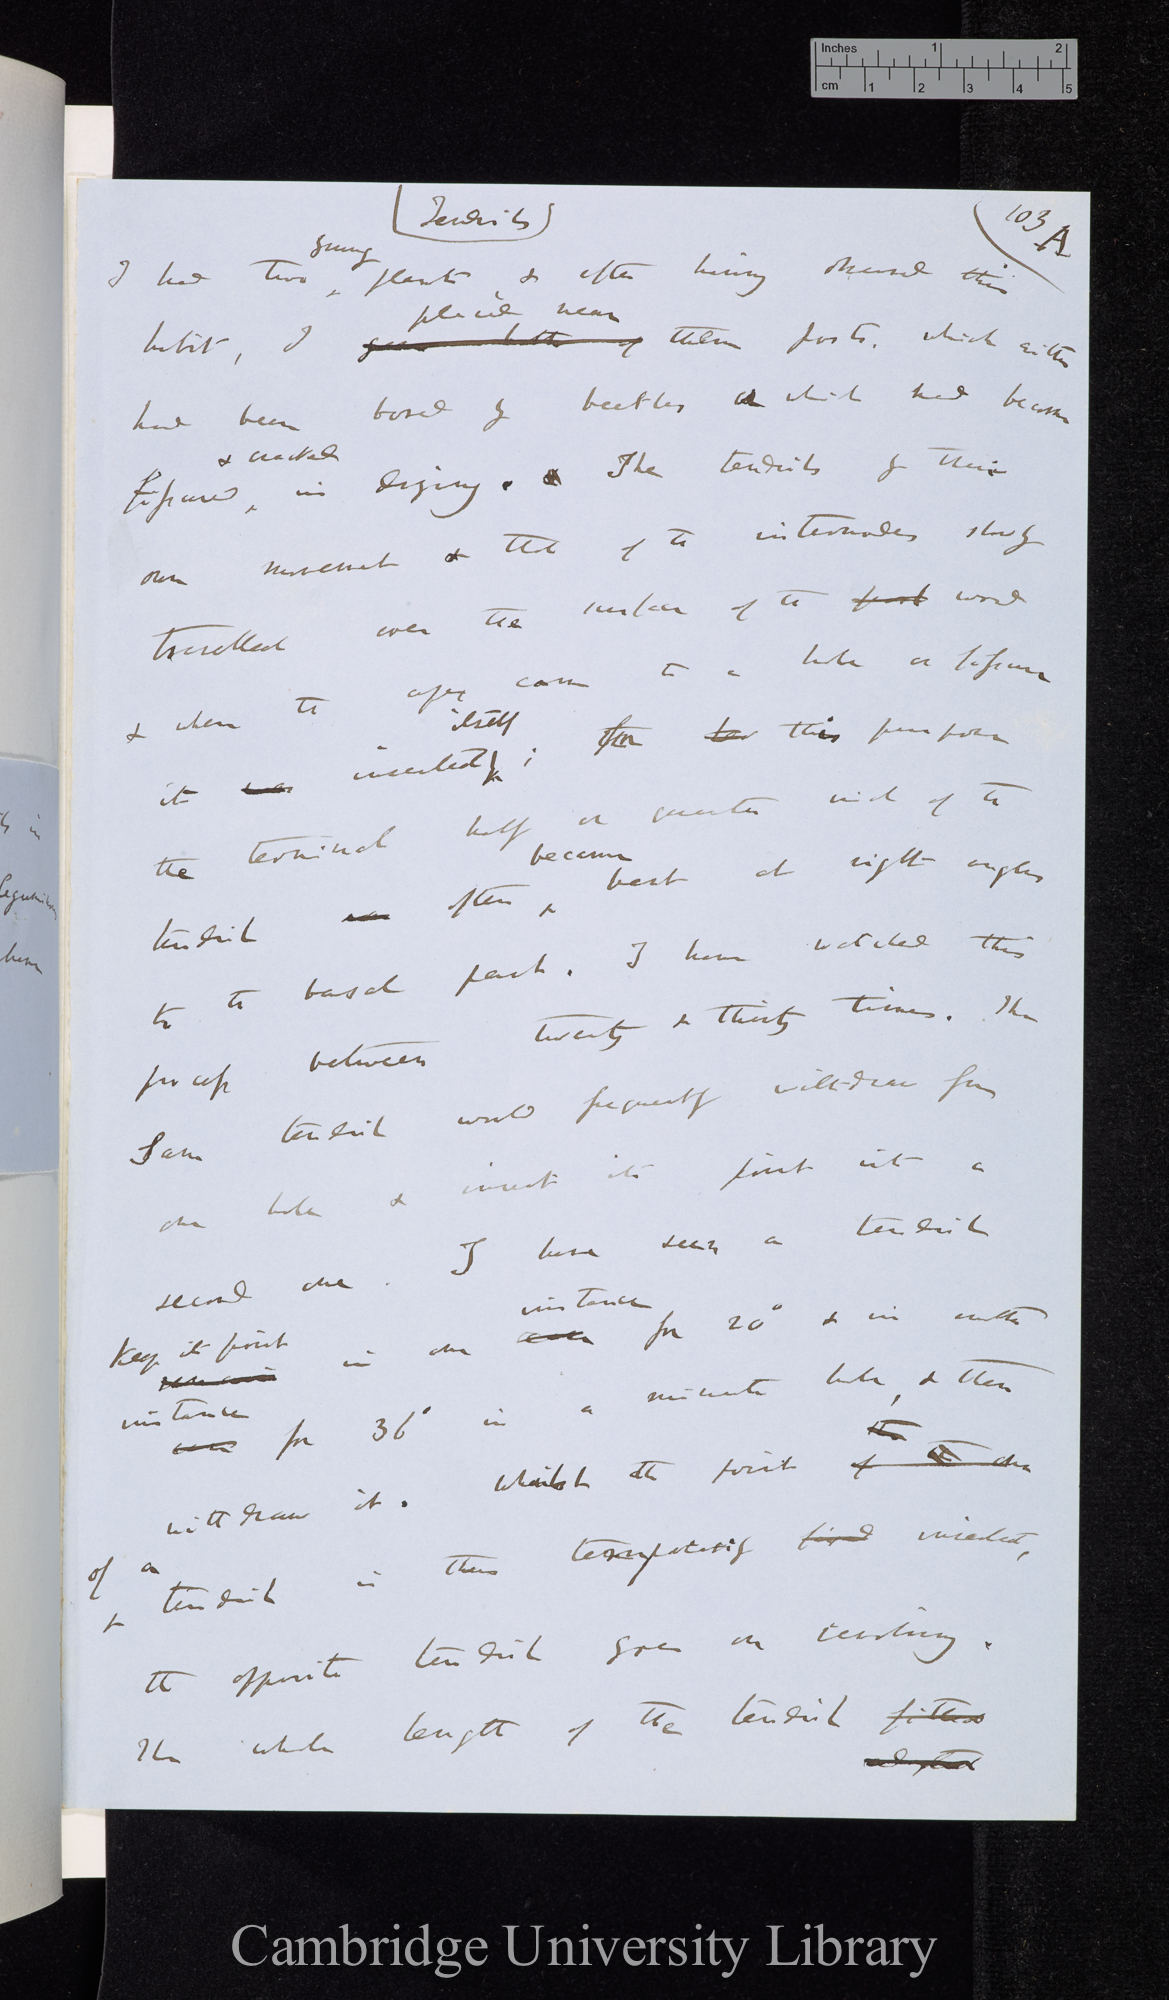 Inches 1 2
cm 1 2 3 4 5
(Tendrils)
103 A
young
I had two plants, & after having observed this
placed near
habit, I them posts, which either
had been bored by beetles or which had become
& cracked
fissured, in drying. The tendrils by their
own movement & that of the internodes slowly
travelled over the surface of the post wood
& when the apex came to a hole or fissure
itself
it was inserted; for this purpose
the terminal half or quarter inch of the
became
tendril was often bent at right angles
to the basal part. I have watched this
process between twenty & thirty times. The
Same tendril would frequently withdraw from
one hole & insert its point into a
second one. I have seen a tendril
instance
keep its point
remain in one case for 20° & in another
instance
case for 36° in a minute hole, & then
the
withdraw it. Whilst the point of the one
of a
tendril is thus temporarily fixed inserted,
the opposite tendril goes on revolving.
The whole length of the tendril fitted
adapted
ls in
Legumin
when
Cambridge University Library